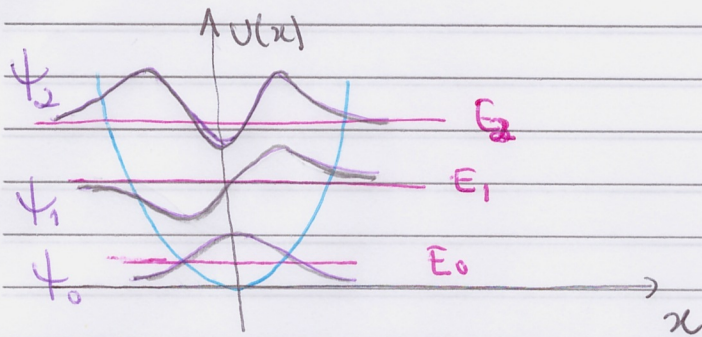 U(x)
ψ₂ E₂
ψ₁ E₁
ψ₀ E₀
x